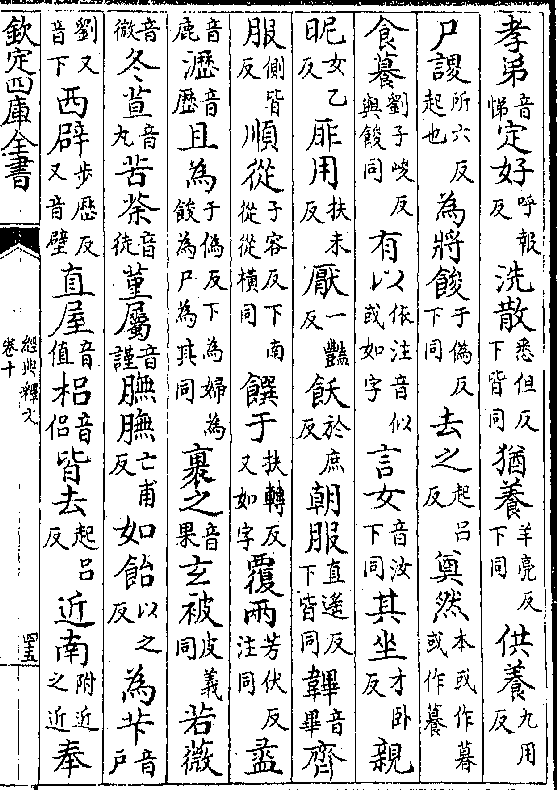 孝弟音悌定好呼報反洗散悉但反下皆同猶養羊亮反下同供養九用反
尸謖所六反起也為將餕于偽反下同去之起呂反奠然本或作暮或作䉵
食䉵劉子峻反與餕同有以依注音似或如字言女音汝下同其坐才卧反親
昵女乙反厞用扶未反厭一豔反飫於庶反朝服直遥反下皆同韠音畢齊
服側皆反順從子容反下南從從橫同饌于扶轉反又如字覆兩芳伏反注同盝
音鹿瀝音歷且為于偽反下為婦為餕為尸為其同裹之音果玄被皮義同若薇
音微冬荁音丸苦荼音徒菫屬音謹膴膴亡甫反如飴以之反為芐音户
劉又音下西辟步歷反又音壁直屋音值梠音侣皆去起呂反近南附近之近奉
欽定四庫全書
經典釋文
卷十